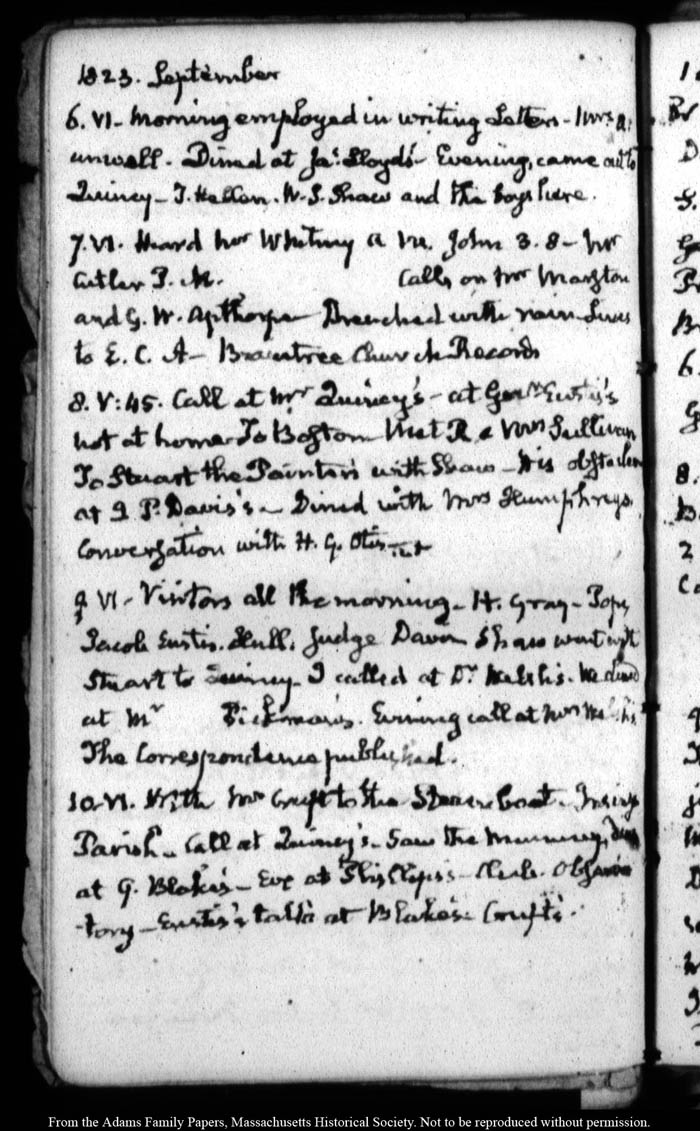 1823. September
6. VI- Morning employed in writing Letters- Mrs A.
unwell- Dined at Jas. Lloyd's- Evening, came out to
Quincy- T. Hellen. W. S. Shaw and the boys here.
7. VI. Heard Mr Whitney A. M. John 3. 8- Mr
Cutler P. M. Calls on Mr Marston
and G. W. Apthorp- Drenched with rain
to E. C. A- Braintree Church Records
8. V:45. Call at Mr Quincy's- at Govr Eustis's
not at home- To Boston- Met R. & Mrs Sullivan
To Stuart the Painter's with Shaw- His obstacles
at I. P. Davis's- Dined with Mrs Humphreys
Conversation with H. G. Otis
9 VI- Visitors all the morning- H. Gray- Pope
Jacob Eustis. Hull. Judge Davis Shaw went with
Stuart to Quincy- I called at Dr Welsh's. We dined
at Mr Pickman's. Evening call at Mrs Welsh's
The Correspondence published.
10. VI. With Mr Cruft to the Steam boat.
Parish- Call at Quincy's- Saw the Mummy. Dined
at G. Blake's- Eve at Phillips's- Club. Observa
tory- Eustis's talk at Blake's- Cruft's.
From the Adams Family Papers, Massachusetts Historical Society. Not to be reproduced without permission.